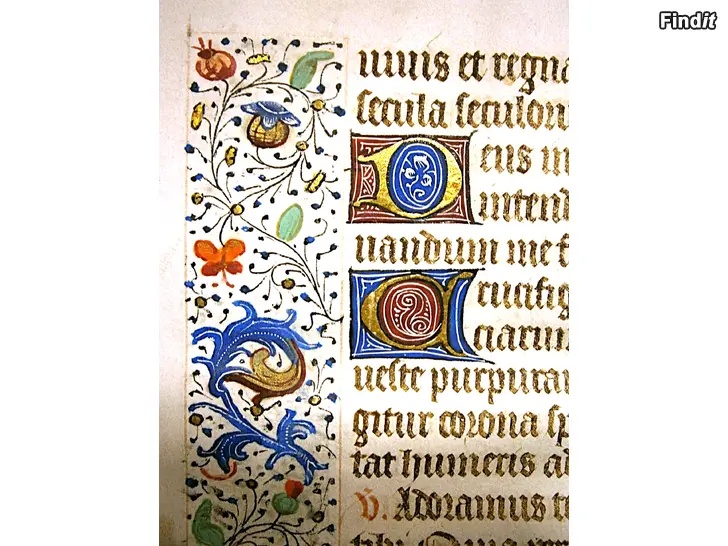 Findit
uiuis et regna
secula seculoru
Deus in
intend
uandum me f
Crucifig
ciarum
ueste purpura
gitur corona sp
tat humeris ad
V. Adoramus te